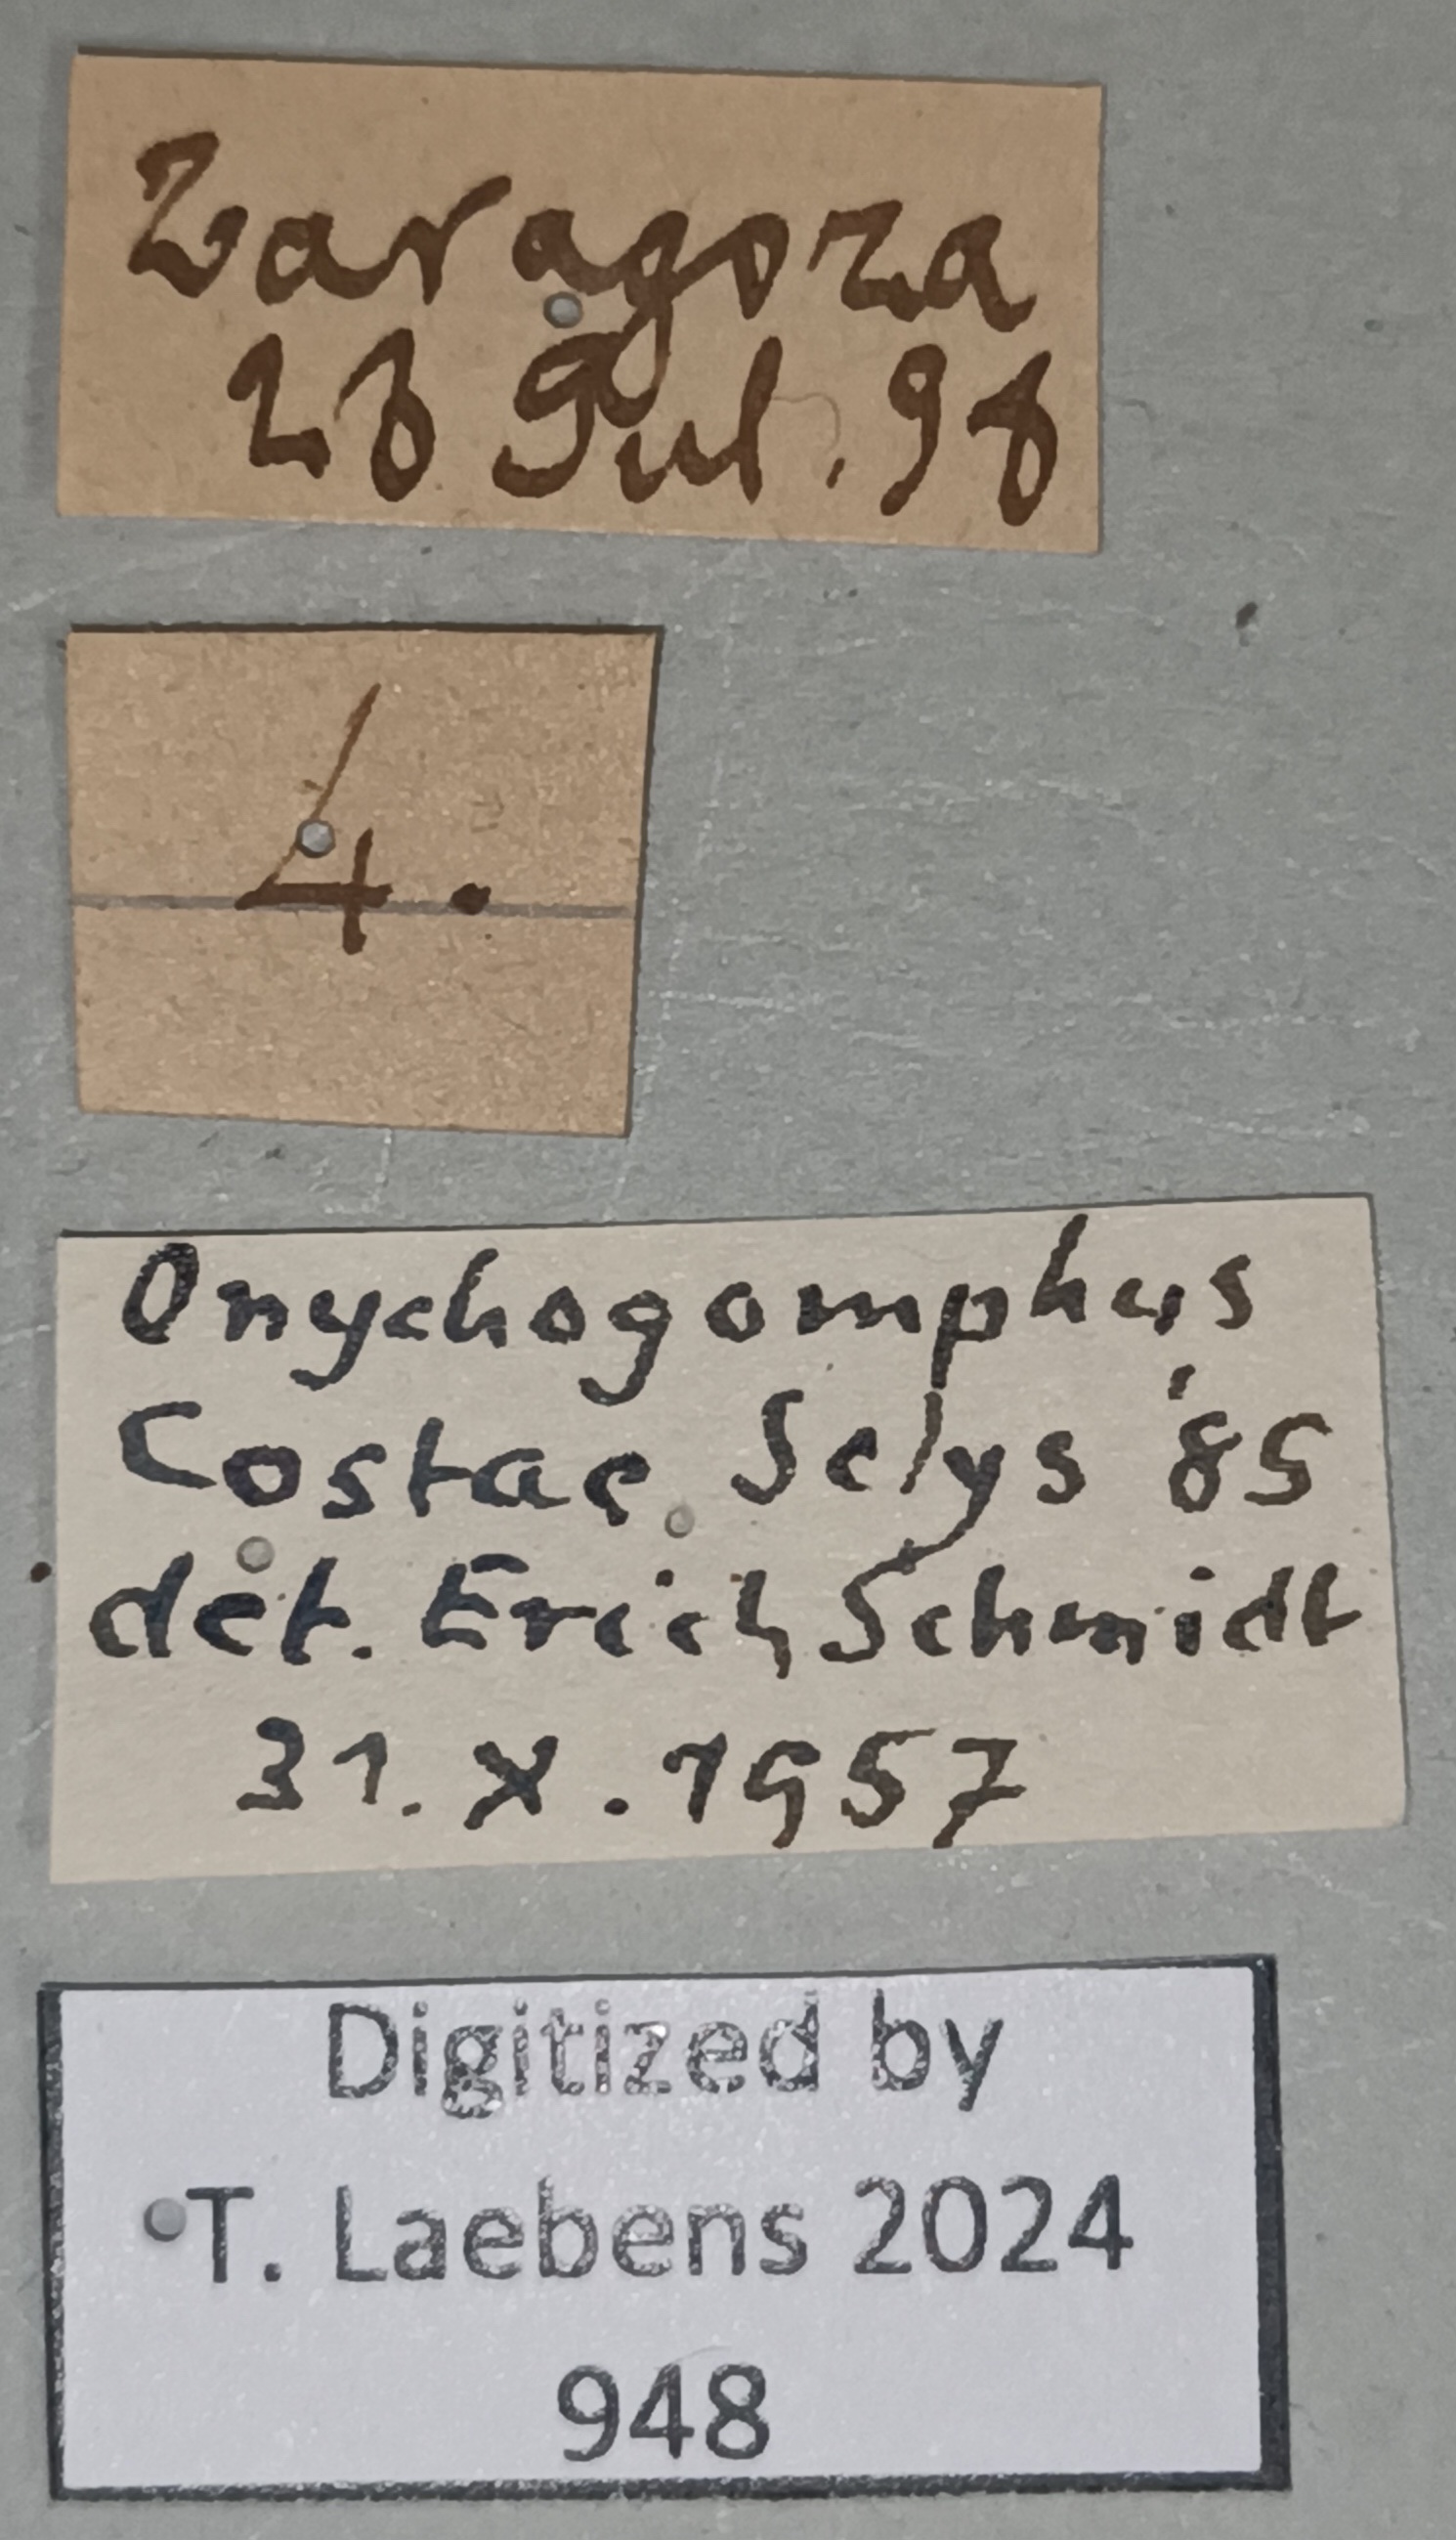 Zaragoza
28 Jul. 98
4.
Onychogomphus
Costae Selys '85
det. Erich Schmidt
31. X. 1957
Digitized by
T. Laebens 2024
948